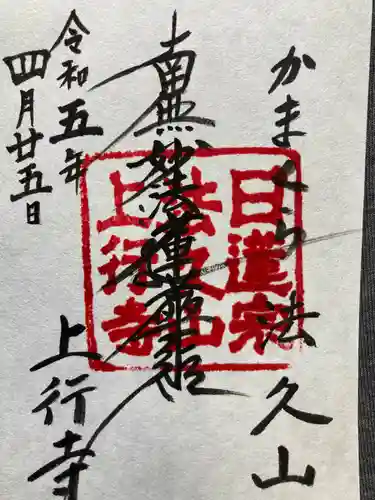 かまくら法久山
南無妙法蓮華経
令和五年
四月廿五日
上行寺
日蓮宗
法久山
上行寺